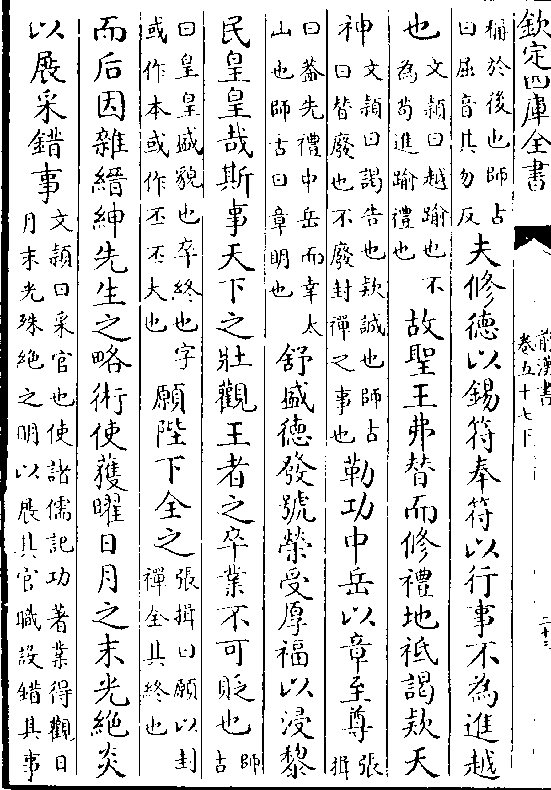 欽定四庫全書
前漢書
卷五十七下
二十三
稱於後也師古
曰屈音其勿反
夫修德以錫符奉符以行事不為進越
也
文穎曰越踰也不
為苟進踰禮也
故聖王弗替而修禮地祇謁欵天
神
文穎曰謁告也欵誠也師古
曰替廢也不廢封禪之事也
勒功中岳以章至尊
張揖
曰葢先禮中岳而幸太
山也師古曰章明也
舒盛德發號榮受厚福以浸黎
民皇皇哉斯事天下之壯觀王者之卒業不可貶也
師古
曰皇皇盛貌也卒終也字
或作本或作丕丕大也
願陛下全之
張揖曰願以封
禪全其終也
而后因雜縉紳先生之略術使獲曜日月之末光絶炎
以展采錯事
文穎曰采官也使諸儒記功著業得觀日
月末光殊絶之明以展其官職設錯其事